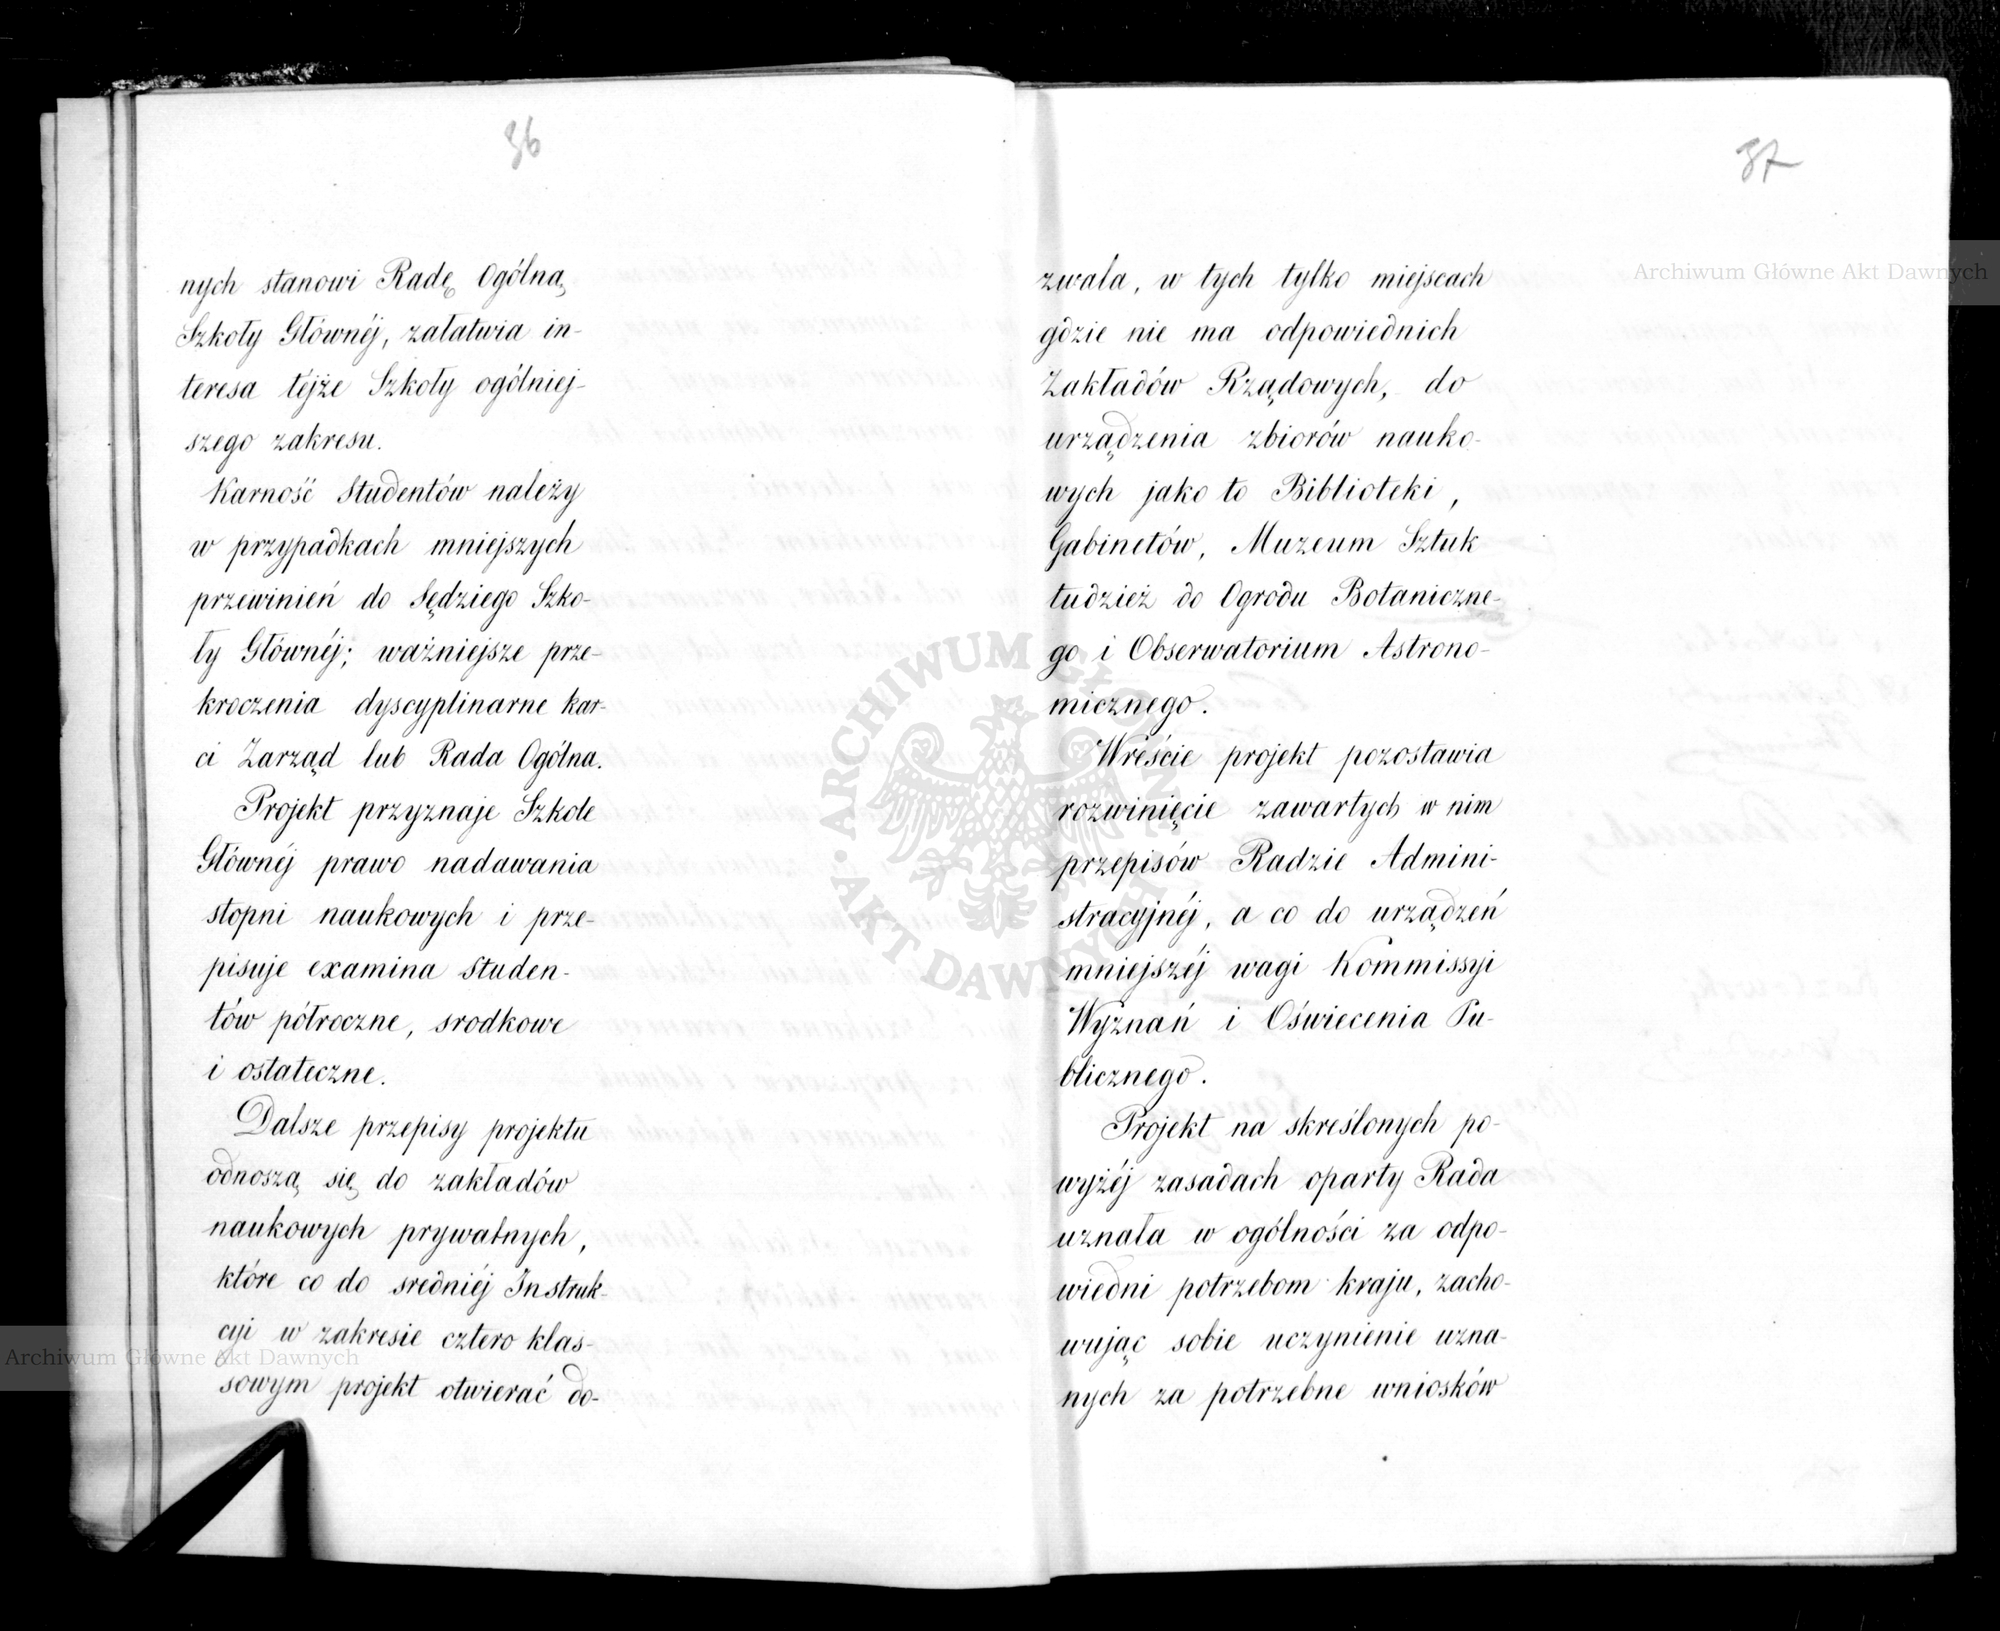 36
nych stanowi Radę Ogólną
Szkoły Głównéj, załatwia in-
teresa téjże Szkoły ogólniej-
szego zakresu.
Karność Studentów należy
w przypadkach mniejszych
przewinień do Sędziego Szko-
ły Głównéj; ważniejsze prze-
kroczenia dyscyplinarne kar-
ci Zarząd lub Rada Ogólna.
Projekt przyznaje Szkole
Głównéj prawo nadawania
stopni naukowych i prze-
pisuje examina Studen-
tów półroczne, srodkowe
i ostateczne.
Dalsze przepisy projektu
odnoszą się do zakładów
naukowych prywatnych,
które co do sredniéj Instruk-
cyi w zakresie cztero klas-
sowym projekt otwierać do-
37
zwala, w tych tylko miejscach
gdzie nie ma odpowiednich
Zakładów Rządowych, do
urządzenia zbiorów nauko-
wych jako to Biblioteki,
Gabinetów, Muzeum Sztuk
tudzież do Ogrodu Botaniczne-
go i Obserwatorium Astrono-
micznego.
Wreście projekt pozostawia
rozwinięcie zawartych w nim
przepisów Radzie Admini-
stracyjnéj, a co do urządzeń
mniejszéj wagi Kommissyi
Wyznań i Oświecenia Pu-
blicznego.
Projekt na skreślonych po-
wyżéj zasadach oparty Rada
uznała w ogólności za odpo-
wiedni potrzebom kraju, zacho-
wując sobie uczynienie uzna-
nych za potrzebne wniosków
Archiwum Główne Akt Dawnych
Archiwum Główne Akt Dawnych
ARCHIWUM GŁÓWNE
AKT DAWNYCH